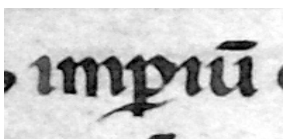 imꝑiū